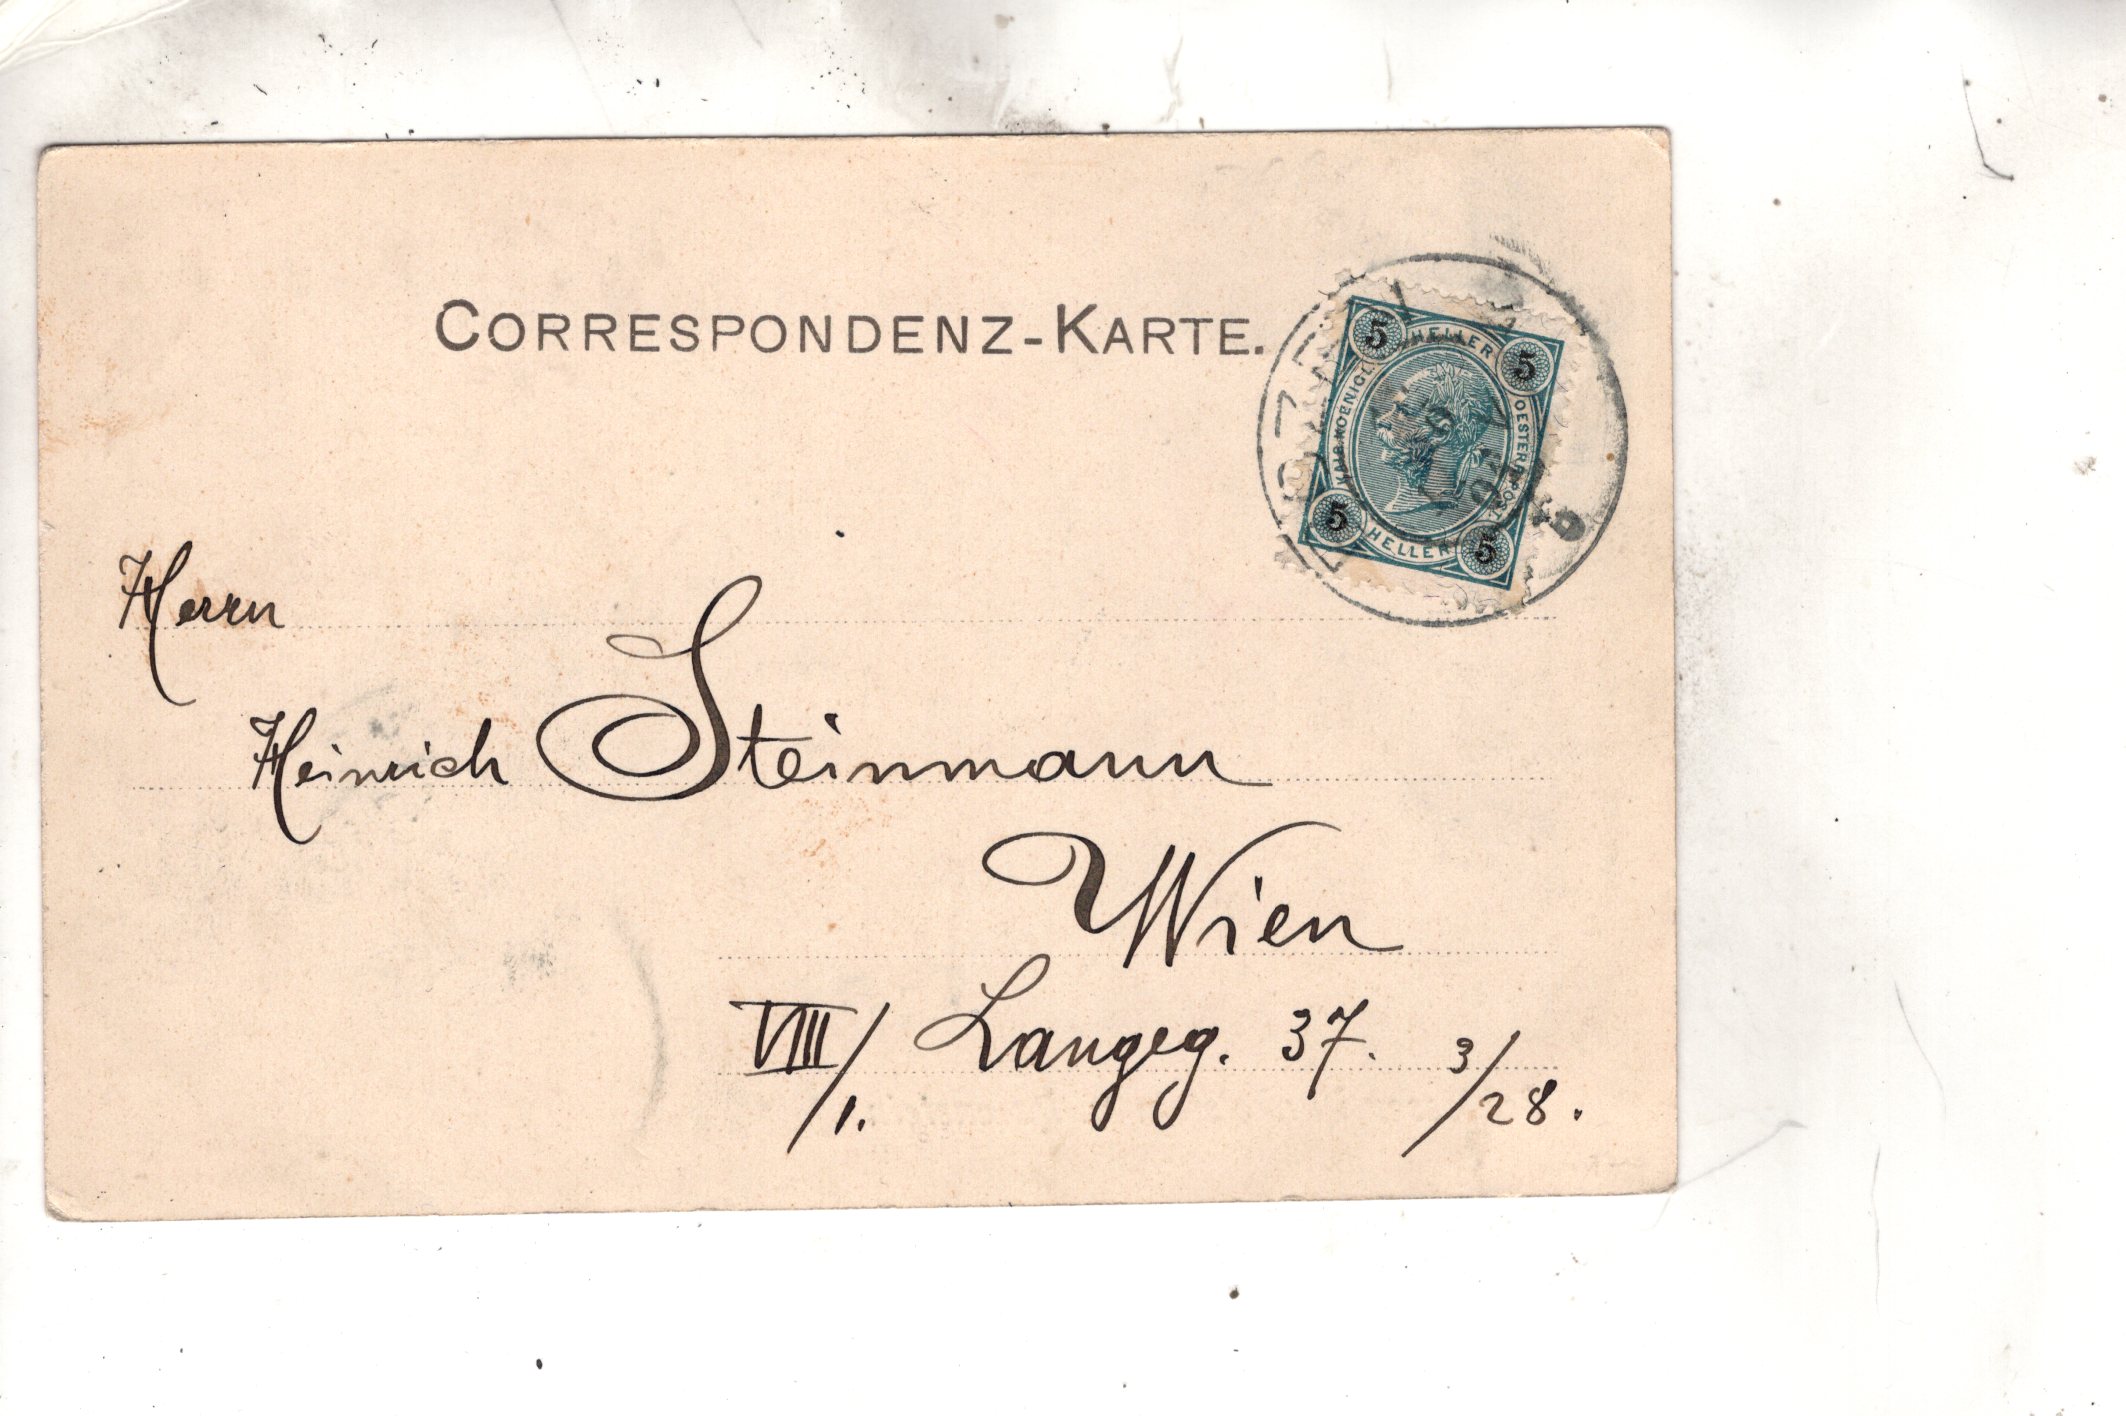 CORRESPONDENZ-KARTE.
5 HELLER 5
KAIS. KOENIGL. OESTERR. POST.
5 HELLER 5
Herrn
Heinrich Steinmann
Wien
VIII/1. Langeg. 37. 3/28.